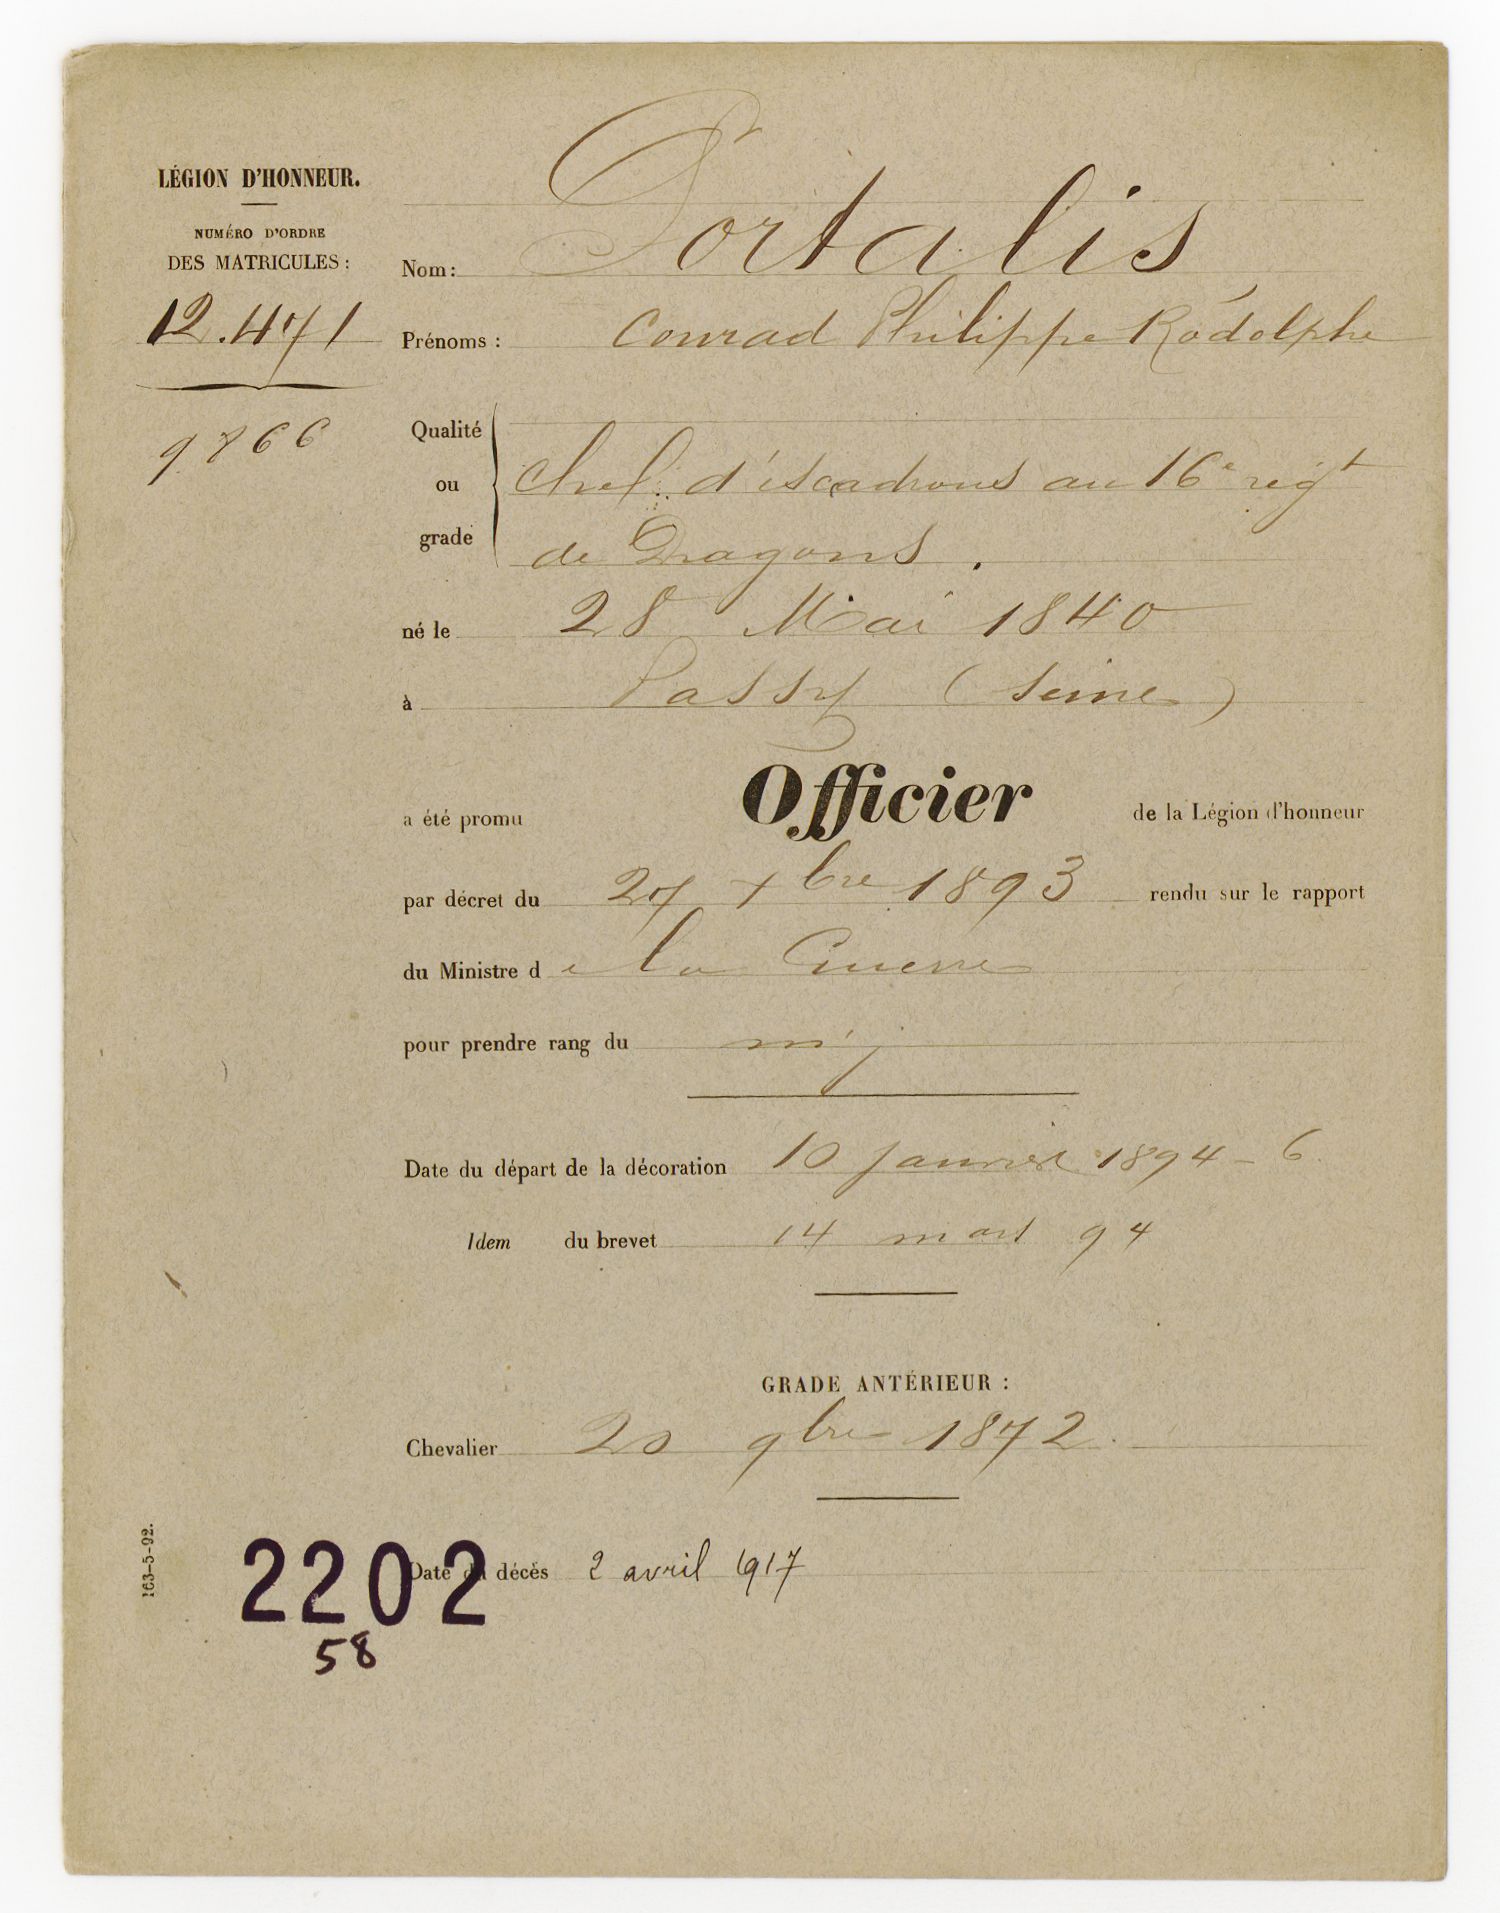 LÉGION D'HONNEUR.
NUMÉRO D'ORDRE
DES MATRICULES :
12.471
9866
Nom : Portalis
Prénoms : Conrad Philippe Rodolphe
Qualité ou grade Chef d'escadrons au 16e régt
de Dragons.
né le 28 Mai 1840
à Passy (Seine)
a été promu Officier de la Légion d'honneur
par décret du 27 Xbre 1893 rendu sur le rapport
du Ministre de la Guerre
pour prendre rang du mj
Date du départ de la décoration 10 Janvier 1894 - 6
Idem du brevet 14 mars 94
GRADE ANTÉRIEUR :
Chevalier 20 9bre 1872.
Date du décès 2 avril 1917
2202
58
163-5-92.